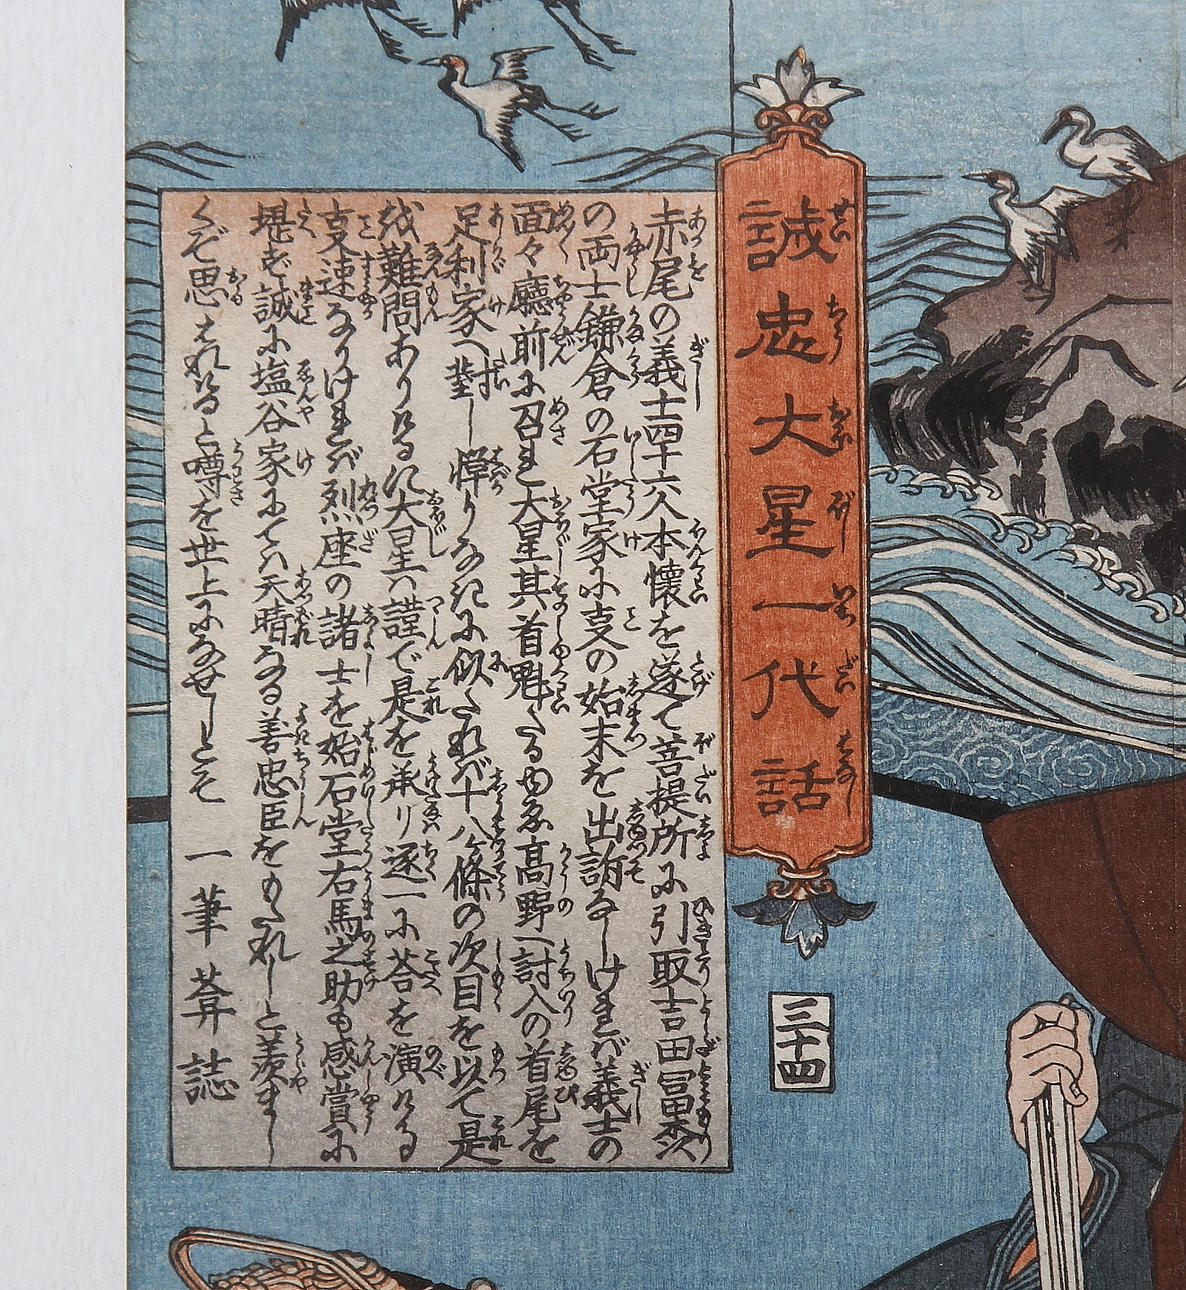 誠忠大星一代話
三十四
赤尾の義士四十六人本懐を遂て菩提所に引取吉田冨森
の両士鎌倉の石堂家に支の始末を出訴なしけれバ義士の
面々廳前に召れ大星其首魁たるゆゑ高野討入の首尾を
足利家へ對し憚りなきに似たれバ十八條の次目を以て是
を難問ありけるに大星ハ謹で是を承り逐一に荅を演ける
支速なりけれバ烈座の諸士を始石堂右馬之助も感賞に
堪ず誠に塩谷家にてハ天晴なる善忠臣をもたれしと羨まし
くぞ思はれけると噂を世上になせしとそ 一筆葊誌